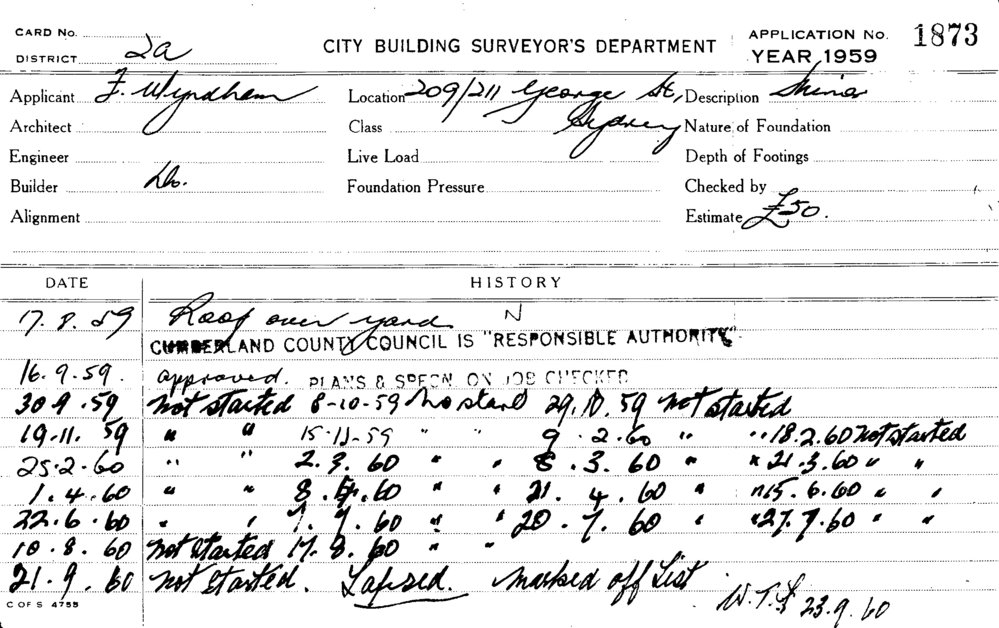 CARD No.
DISTRICT 2a
CITY BUILDING SURVEYOR'S DEPARTMENT
APPLICATION No. 1873
YEAR 1959
Applicant F. Wyndham Location 209/211 George St, Sydney Description Minor
Architect Class Nature of Foundation
Engineer Live Load Depth of Footings
Builder Do. Foundation Pressure Checked by
Alignment Estimate £50.
DATE HISTORY
17. 8. 59 Roof over yard. N
CUMBERLAND COUNTY COUNCIL IS "RESPONSIBLE AUTHORITY"
16. 9. 59. approved. PLANS & SPECN. ON JOB CHECKED
30 9 . 59 Not started 8-10-59 No start 29. 10. 59 Not started
19.11. 59 " " 15-11-59 " " 9 . 2. 60 " " 18.2.60 Not started
25.2.60 " " 2. 3. 60 " " 8 . 3. 60 " " 21.3.60 " "
1. 4. 60 " " 8. 4. 60 " " 21. 4. 60 " " 15. 6. 60 " "
22. 6. 60 " " 7. 7. 60 " " 20. 7. 60 " " 27. 7. 60 " "
10. 8. 60 Not started 17. 8. 60 " "
21. 9. 60 Not started. Lapsed. Marked off List
23.9.60
C OF S 4755